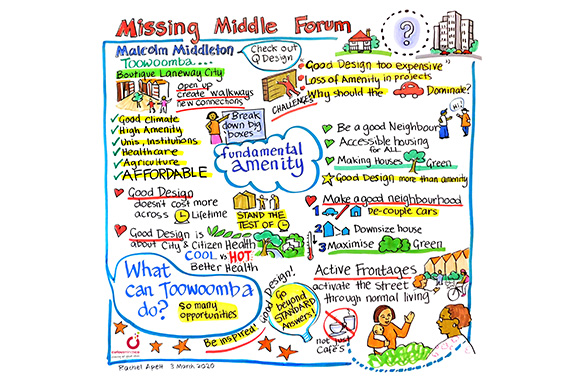 Missing Middle Forum
Malcolm Middleton
Toowoomba....
Boutique Laneway City
Open up
create walkways
new connections
Check out
Q Design
"Good Design too expensive"
Loss of Amenity in projects
Why should the Dominate?
CHALLENGES
?
Hi!
✓ Good Climate
✓ High Amenity
✓ Unis, Institutions
✓ Healthcare
✓ Agriculture
✓ AFFORDABLE
Break
down big
boxes
Fundamental
amenity
Be a good Neighbour
Accessible housing
for ALL
Making Houses Green
Good Design more than amenity
Good Design
doesn't cost more
across Lifetime
STAND THE
TEST OF
Good Design is
about City & Citizen Health
COOL vs HOT
Better Health
Make a good neighbourhood
1 De-couple cars
2 Downsize house
3 Maximise Green
What
can Toowoomba
do?
So many
opportunities
Be inspired!
Good Design!
Go
beyond
STANDARD
Answers!
Active Frontages
activate the street
through normal living
not just
Cafe's
Rachel Apelt 3 March 2020